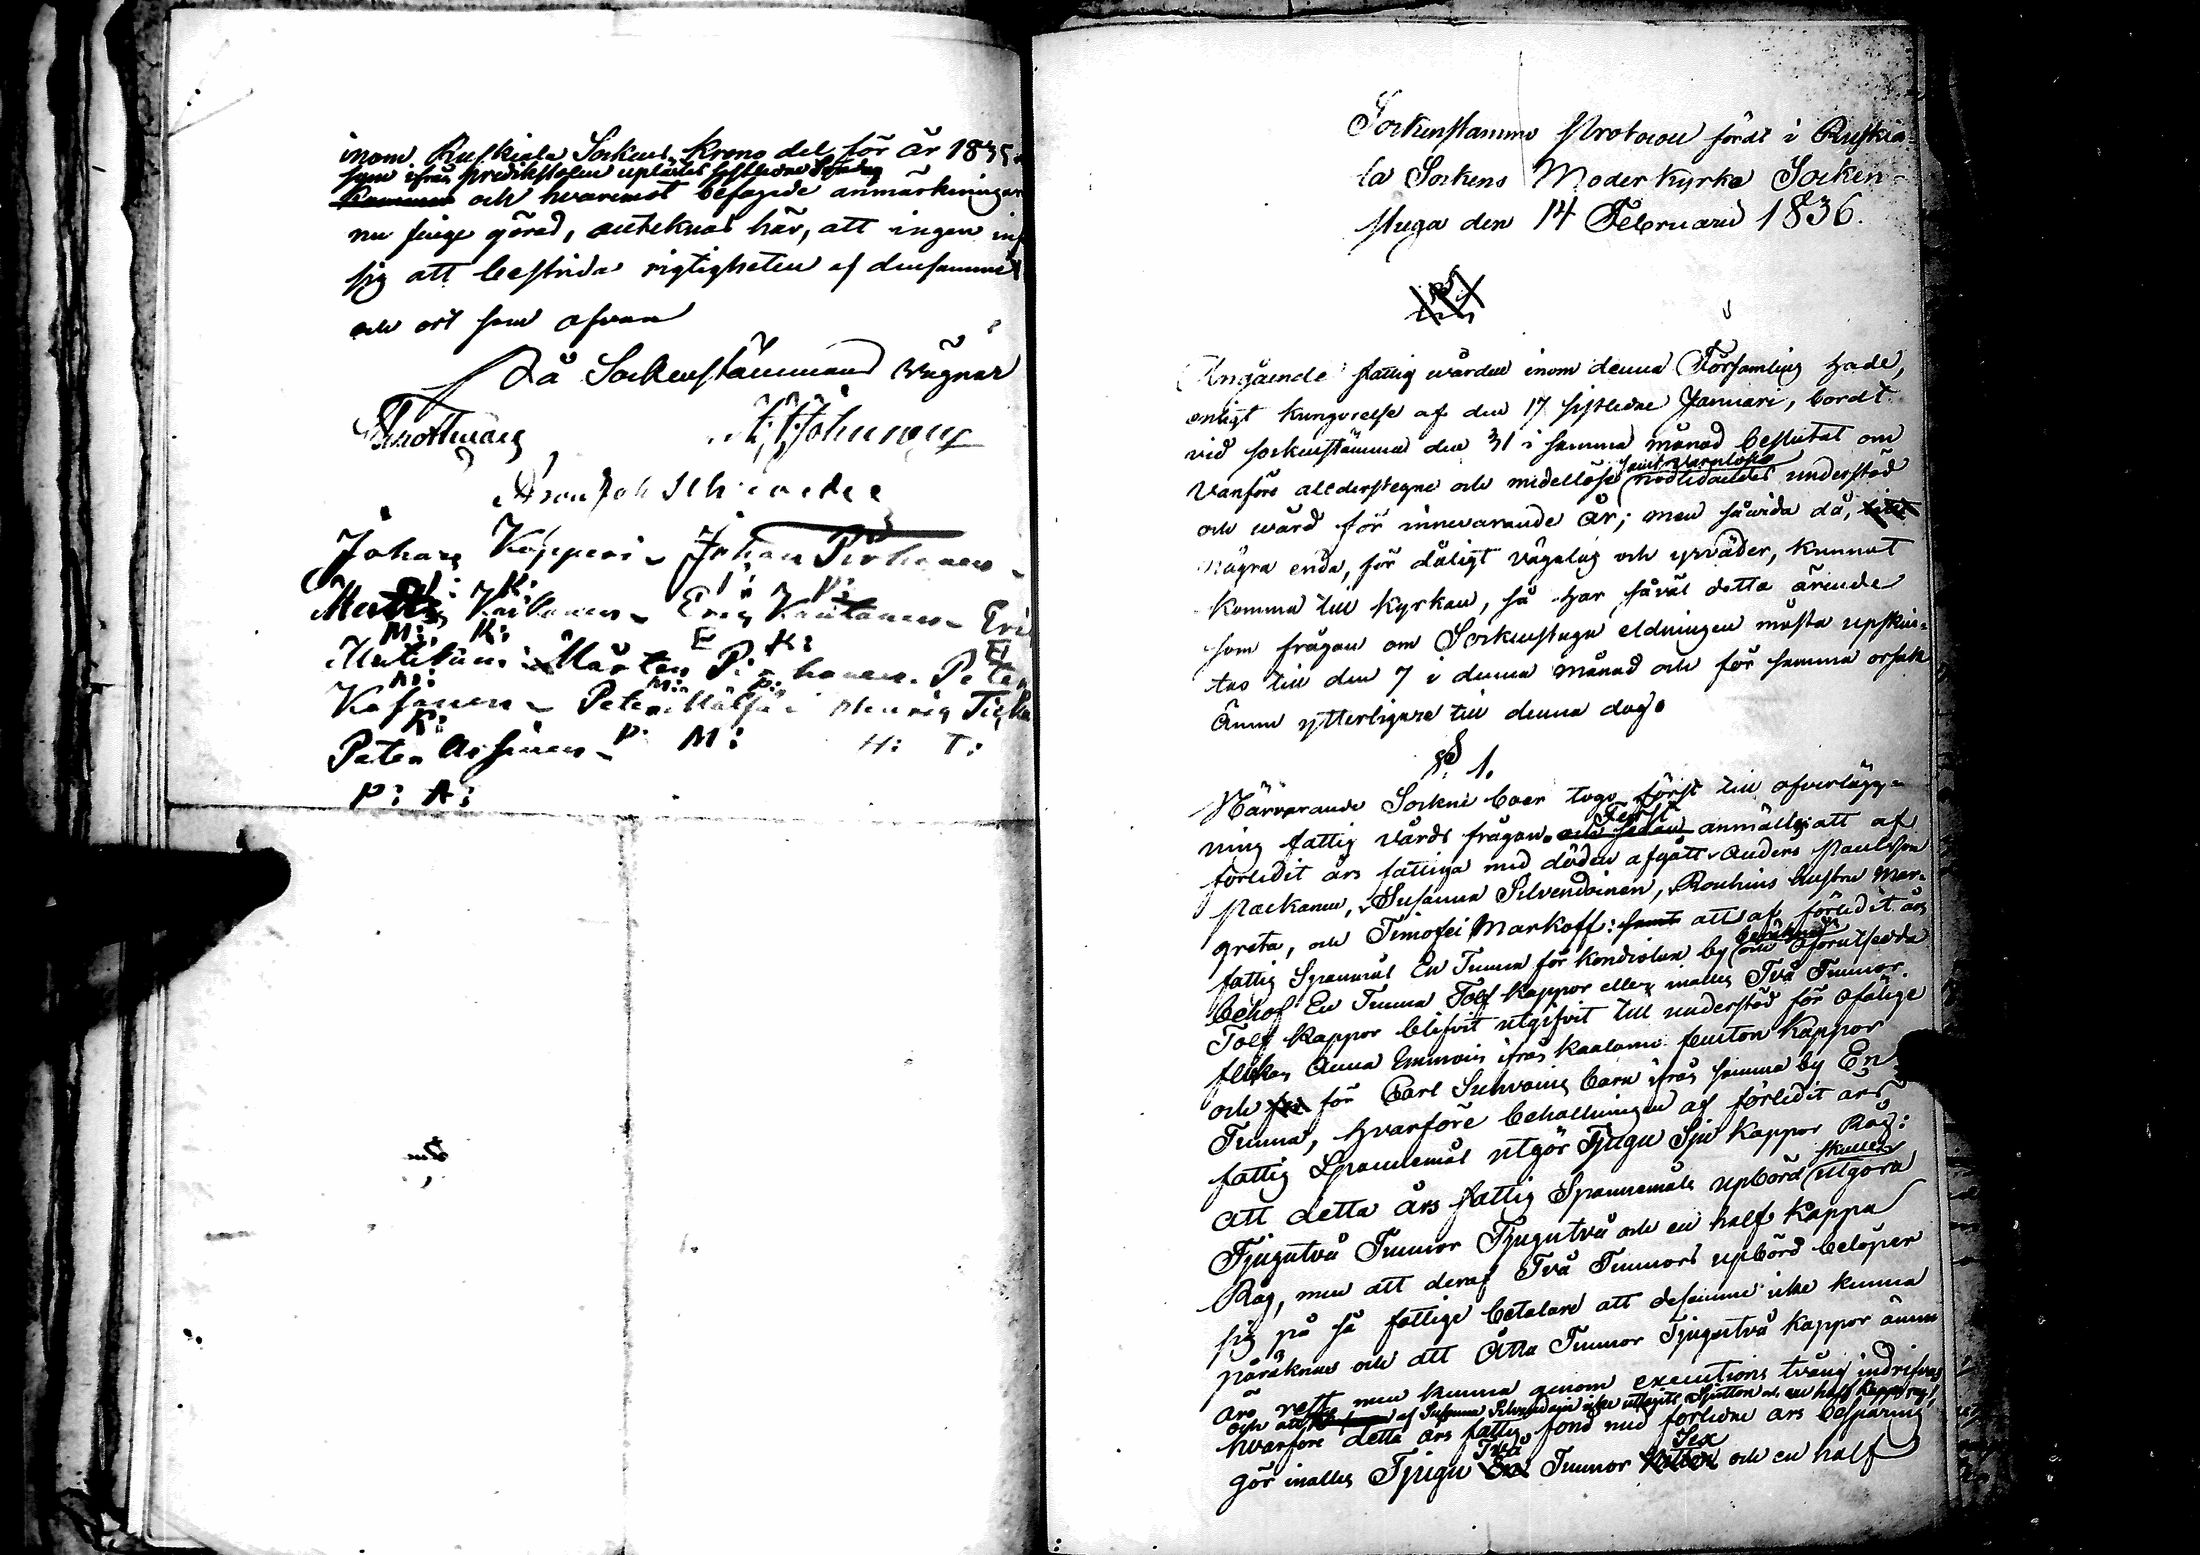 inom Ruskiala Sockens krono del för år 1835
som ifrån predikstolen uplästes sistledne Söndag
kommer och hvaremot befogade anmärkningar
nu finge göras, anteknas här, att ingen
sig att bestrida rigtigheten af densamma
och ort som ofvan
På Sockenstämmans vägnar
Johan Kopperi Johan Pirhonen
J: K: J: P:
Kaitanen Eric Kaitanen Eric
M: K: E K: E
Mårten Pirhonen Peter
M: M: P:
Kasonen Peter Henric
K:
Peter Assinen P: M: H: T:
P: A:
Sockenstämmo Protocoll fördt i Ruskia-
la Sockens Moderkyrko Socken-
stuga den 14 Februarii 1836.
Angående fattig vården inom denna Församling hade,
enligt kungörelse af den 17 sistledne Januari, bordt
vid sockenstämma den 31 i samma månad beslutat om
samt värnlösa
vanföre ålderstegne och medellöse nödlidandes understöd
och wård för innevarande år; men såvida då,
några enda, för dåligt väglag och yrväder, kunnat
komma till kyrkan, så har såväl detta ärende
som frågan om Sockenstugu eldningen måsta upskju-
tas till den 7 i denna månad och för samma orsak
ännu ytterligare till denna dag.
§ 1.
Närvarande Sockne boer togo först till öfverlägg-
ning fattig vårds frågan och sedan anmältes att af
förledit års fattiga med döden afgått Anders Paulsson
Packanen, Susanna Silvendoinen, Rouhins hustru Mar-
greta, och Timofei Markoff: samt att af förledit års
fattig Spanmål En Tunna för Kondiolan by och oförutsedda
behof En Tunna Tolf kappor eller inalles Två Tunnor
Tolf kappor blifvit utgifvit till understöd för ofälige
flickan Anna ifrån Kaalamo femton kappor
och för för Carl barn ifrån samma by En
Tunna, hvarföre behållningen af förledit års
fattig Spannemål utgör Tjugu Sju kappor Råg:
skulle
att detta års fattig Spannemåls upbörd utgöra
Tjugutvå Tunnor Tjugutvå och en half kappa
Råg, men att deraf Två Tunnors upbörd belöper
sig på så fattige betalare att desamme icke kunna
påräknas och att Åtta Tunnor Tjugutvå kappor ännu
äro rest men kunna genom executions tvång indrifvas
och att af Susanna icke uttagits Sjutton och en half kappor råg,
hvarföre detta års fattig fond med förledne års besparing
Två Sex
gör inalles Tjugu En Tunnor och en half